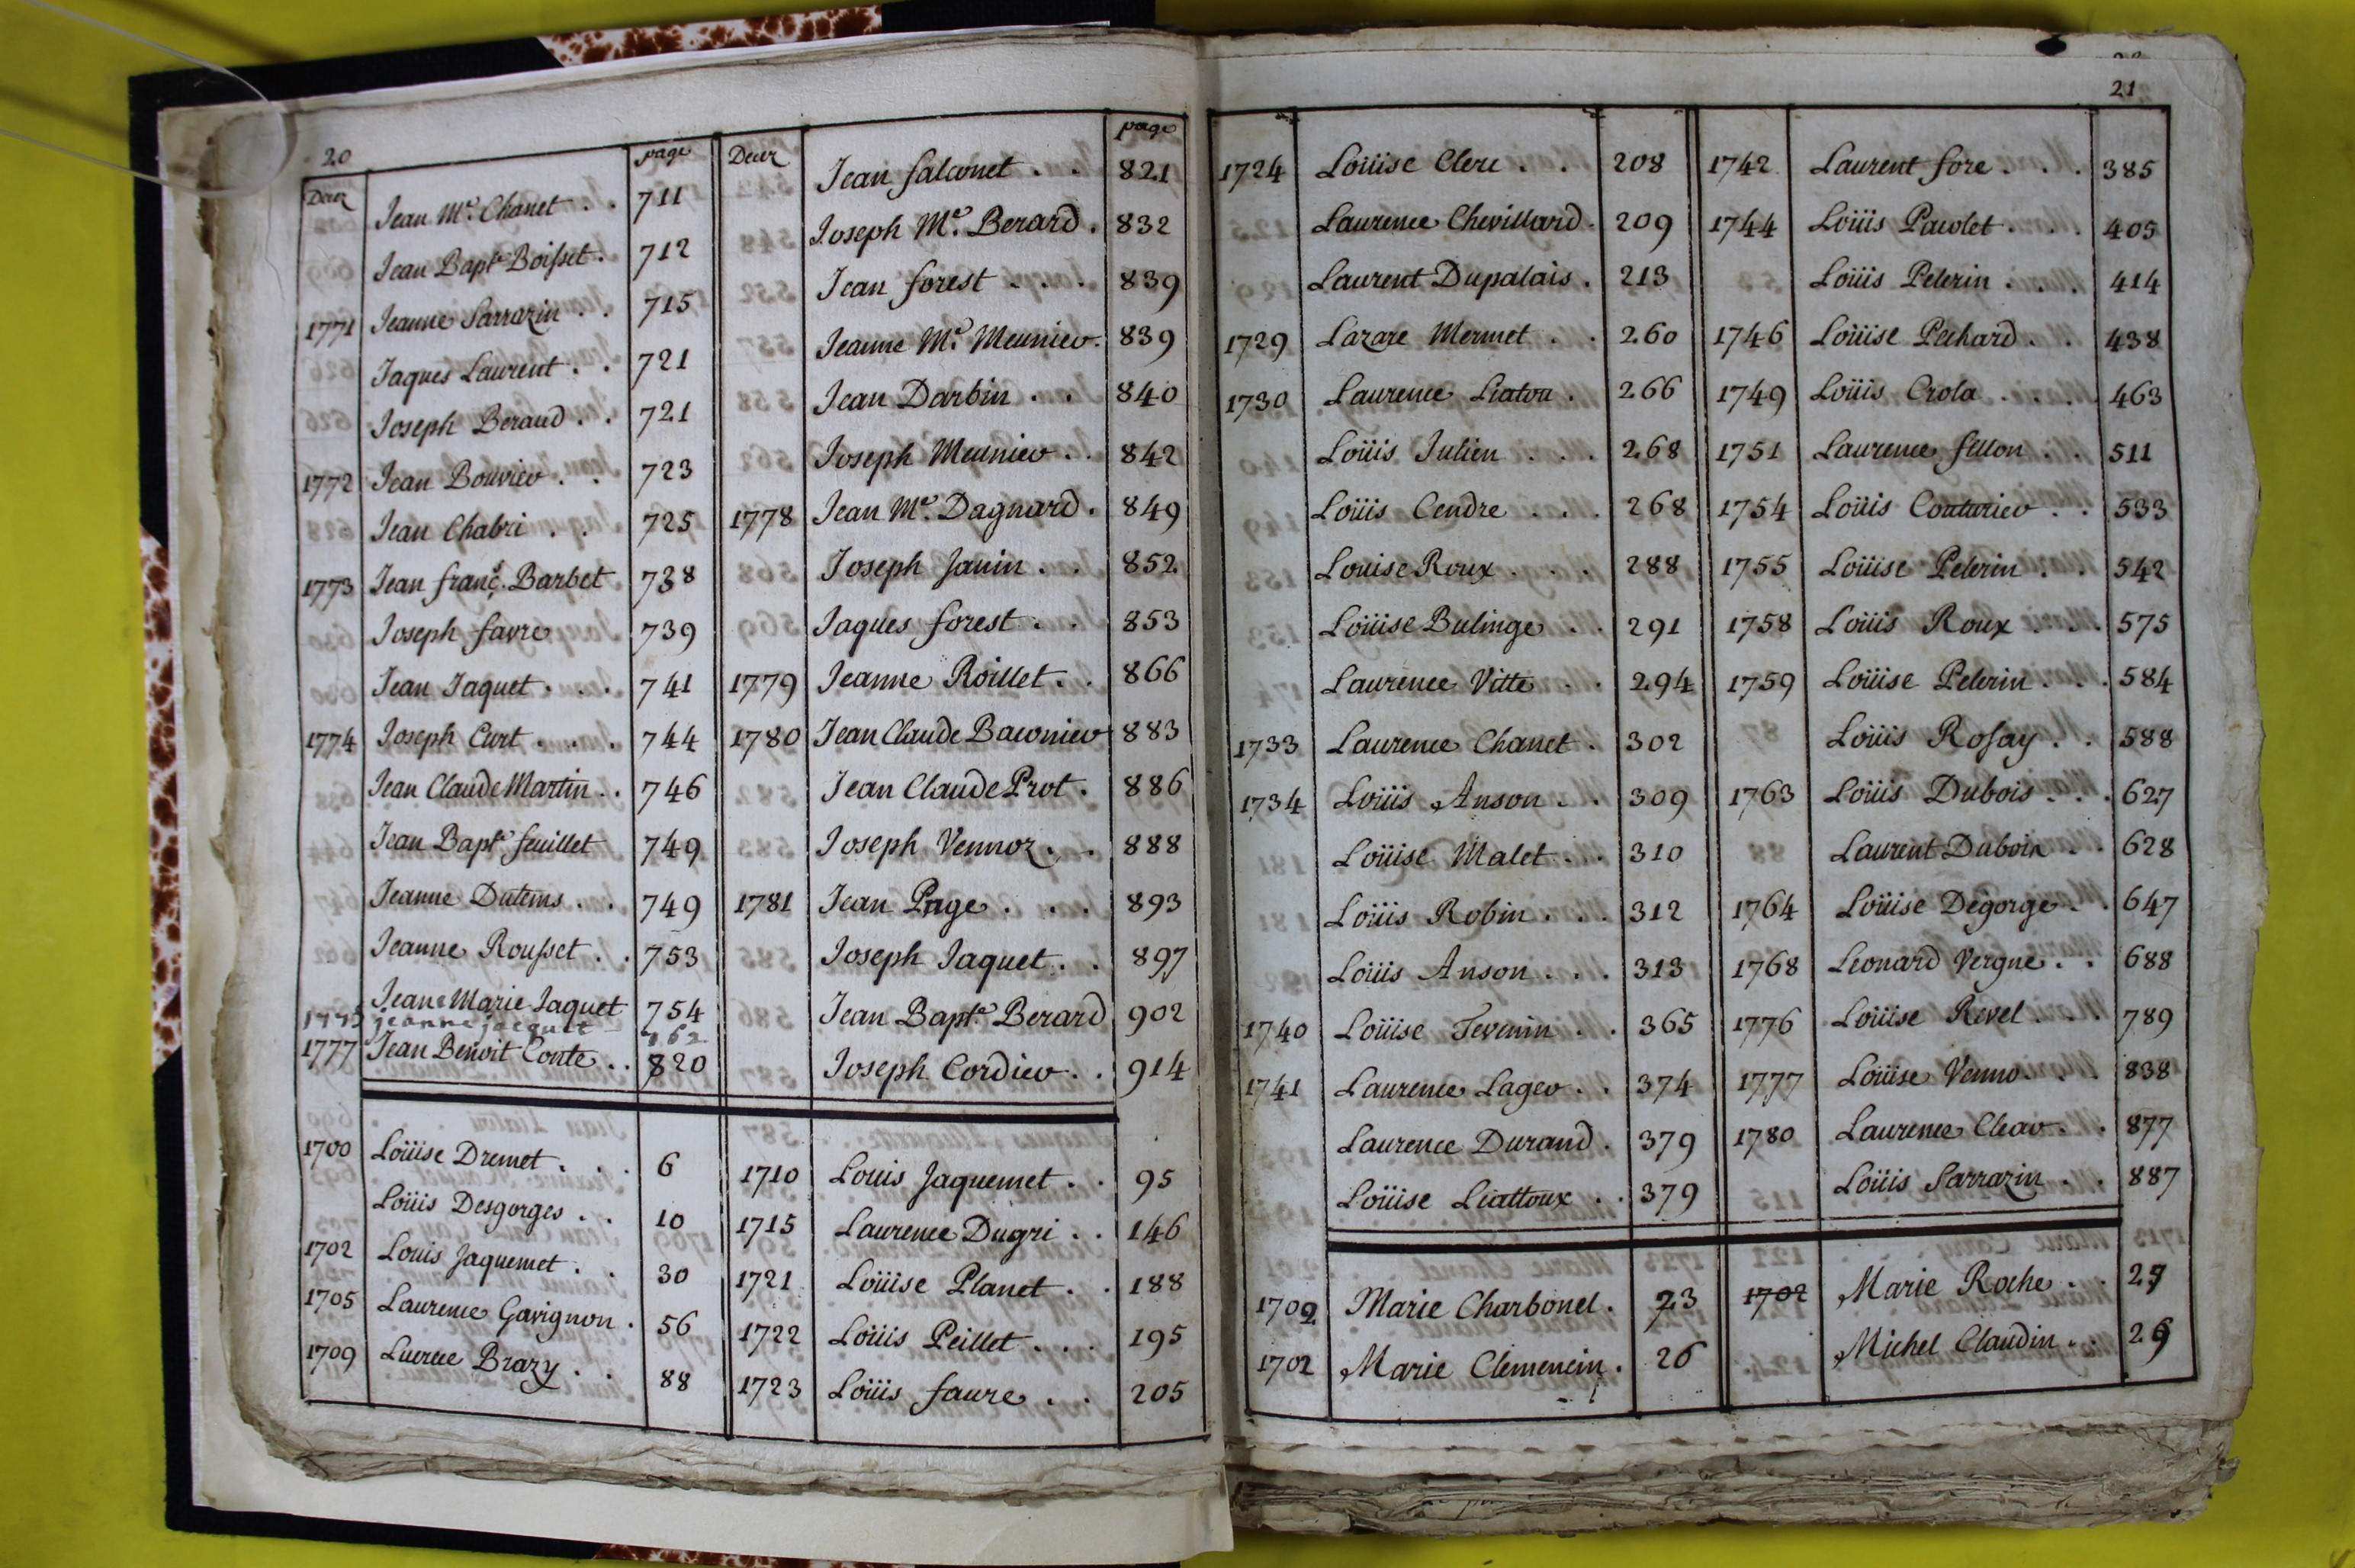 20
page
Decez Jean Me. Chanet . . 711
Jean Bapte Boisset . 712
1771 Jeanne Sarrazin . . 715
Jaques Laurent . . 721
Joseph Beraud . . 721
1772 Jean Bouvier . . 723
Jean Chabri . . 725
1773 Jean franc. Barbet 738
Joseph favre 739
Jean Jaquet . . . 741
1774 Joseph Curt . . . 744
Jean Claude Martin . . 746
Jean Bapte feuillet 749
Jeanne Dutems . . 749
Jeanne Rousset . . 753
Jeane Marie Jaquet 754
1775 jeanne jacquet 762
1777 Jean Benoit Conte . . 820
1700 Loüise Dremet . . . 6
Loüis Desgorges . . 10
1702 Louis Jaquemet . . 30
1705 Laurence Gavignon . 56
1709 Lucrece Brazy . . 88
page
Decez Jean falconet . . 821
Joseph Me. Berard . 832
Jean forest . . . 839
Jeanne Me. Meunier . 839
Jean Darbin . . 840
Joseph Meunier . . 842
1778 Jean Me. Dagnard . 849
Joseph Janin . . 852
Jaques forest . . 853
1779 Jeanne Roillet . . 866
1780 Jean Claude Baconier 883
Jean Claude Prot . 886
Joseph Vennoz . . 888
1781 Jean Page . . . 893
Joseph Jaquet . . 897
Jean Bapte Berard 902
Joseph Cordier . . 914
1710 Louis Jaquemet . . 95
1715 Laurence Dugri . . 146
1721 Loüise Planet . . 188
1722 Loüis Peillet . . . 195
1723 Loüis faure . . 205
21
1724 Loüise Clerc . . 208
Laurence Chevillard . 209
Laurent Dupalais . 213
1729 Lazare Mermet . . 260
1730 Laurence Liatou . 266
Loüis Julien . . . 268
Loüis Cendre . . . 268
Louise Roux . . . 288
Loüise Bulinge . . 291
Laurence Vitte . . 294
1733 Laurence Chanet . 302
1734 Loüis Anson . . 309
Loüise Malet . . 310
Loüis Robin . . . 312
Loüis Anson . . . 313
1740 Loüise Tevenin . . 365
1741 Laurence Lager . . 374
Laurence Durand . 379
Loüise Liattoux . . 379
1702 Marie Charbonel . 23
1702 Marie Clemencin . 26
1742 Laurent fore . . . 385
1744 Loüis Pacolet . . . 405
Loüis Pelerin . . . 414
1746 Loüise Pechard . . 438
1749 Loüis Crola . . . 463
1751 Laurence fillon . . 511
1754 Loüis Couturier . . 533
1755 Loüise Pelerin . . 542
1758 Loüis Roux . . . 575
1759 Loüise Pelerin . . . 584
Loüis Rosay . . 588
1763 Loüis Dubois . . . 627
Laurent Dubois . . 628
1764 Loüise Degorge . . 647
1768 Leonard Vergne . . 688
1776 Loüise Revel . . . 789
1777 Loüise Venno . . . 838
1780 Laurence Clear . . 877
Loüis Sarrazin . . 887
1702 Marie Roche . . 27
Michel Claudin . . 29